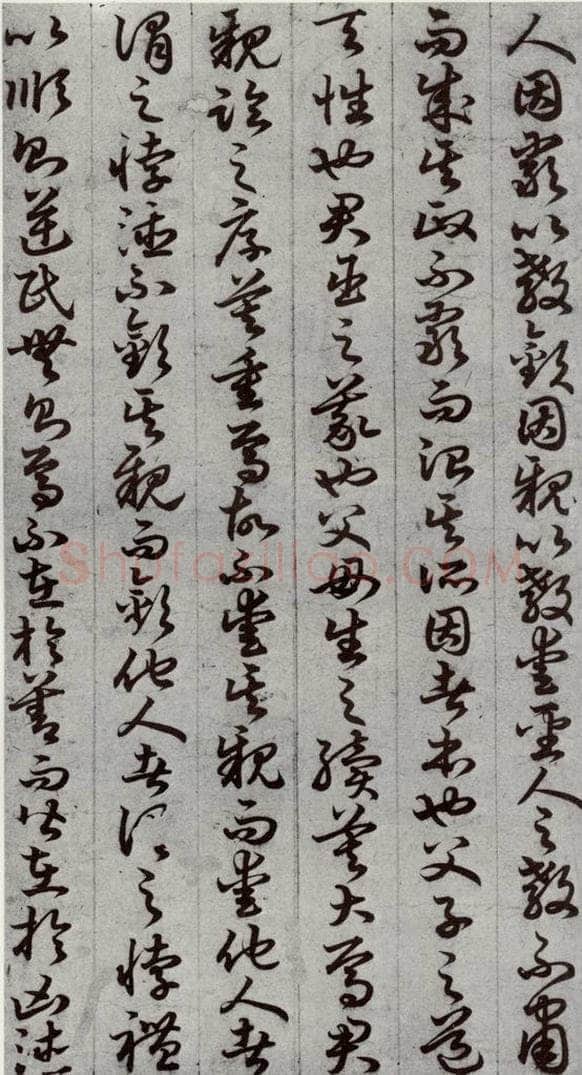 人因嚴以教敬因親以教愛聖人之教不肅
而成其政不嚴而治其所因者本也父子之道
天性也君臣之義也父母生之續莫大焉君
親臨之厚莫重焉故不愛其親而愛他人者
謂之悖德不敬其親而敬他人者謂之悖禮
以順則逆民無則焉不在於善而皆在於凶德
Shufaziliao.COM